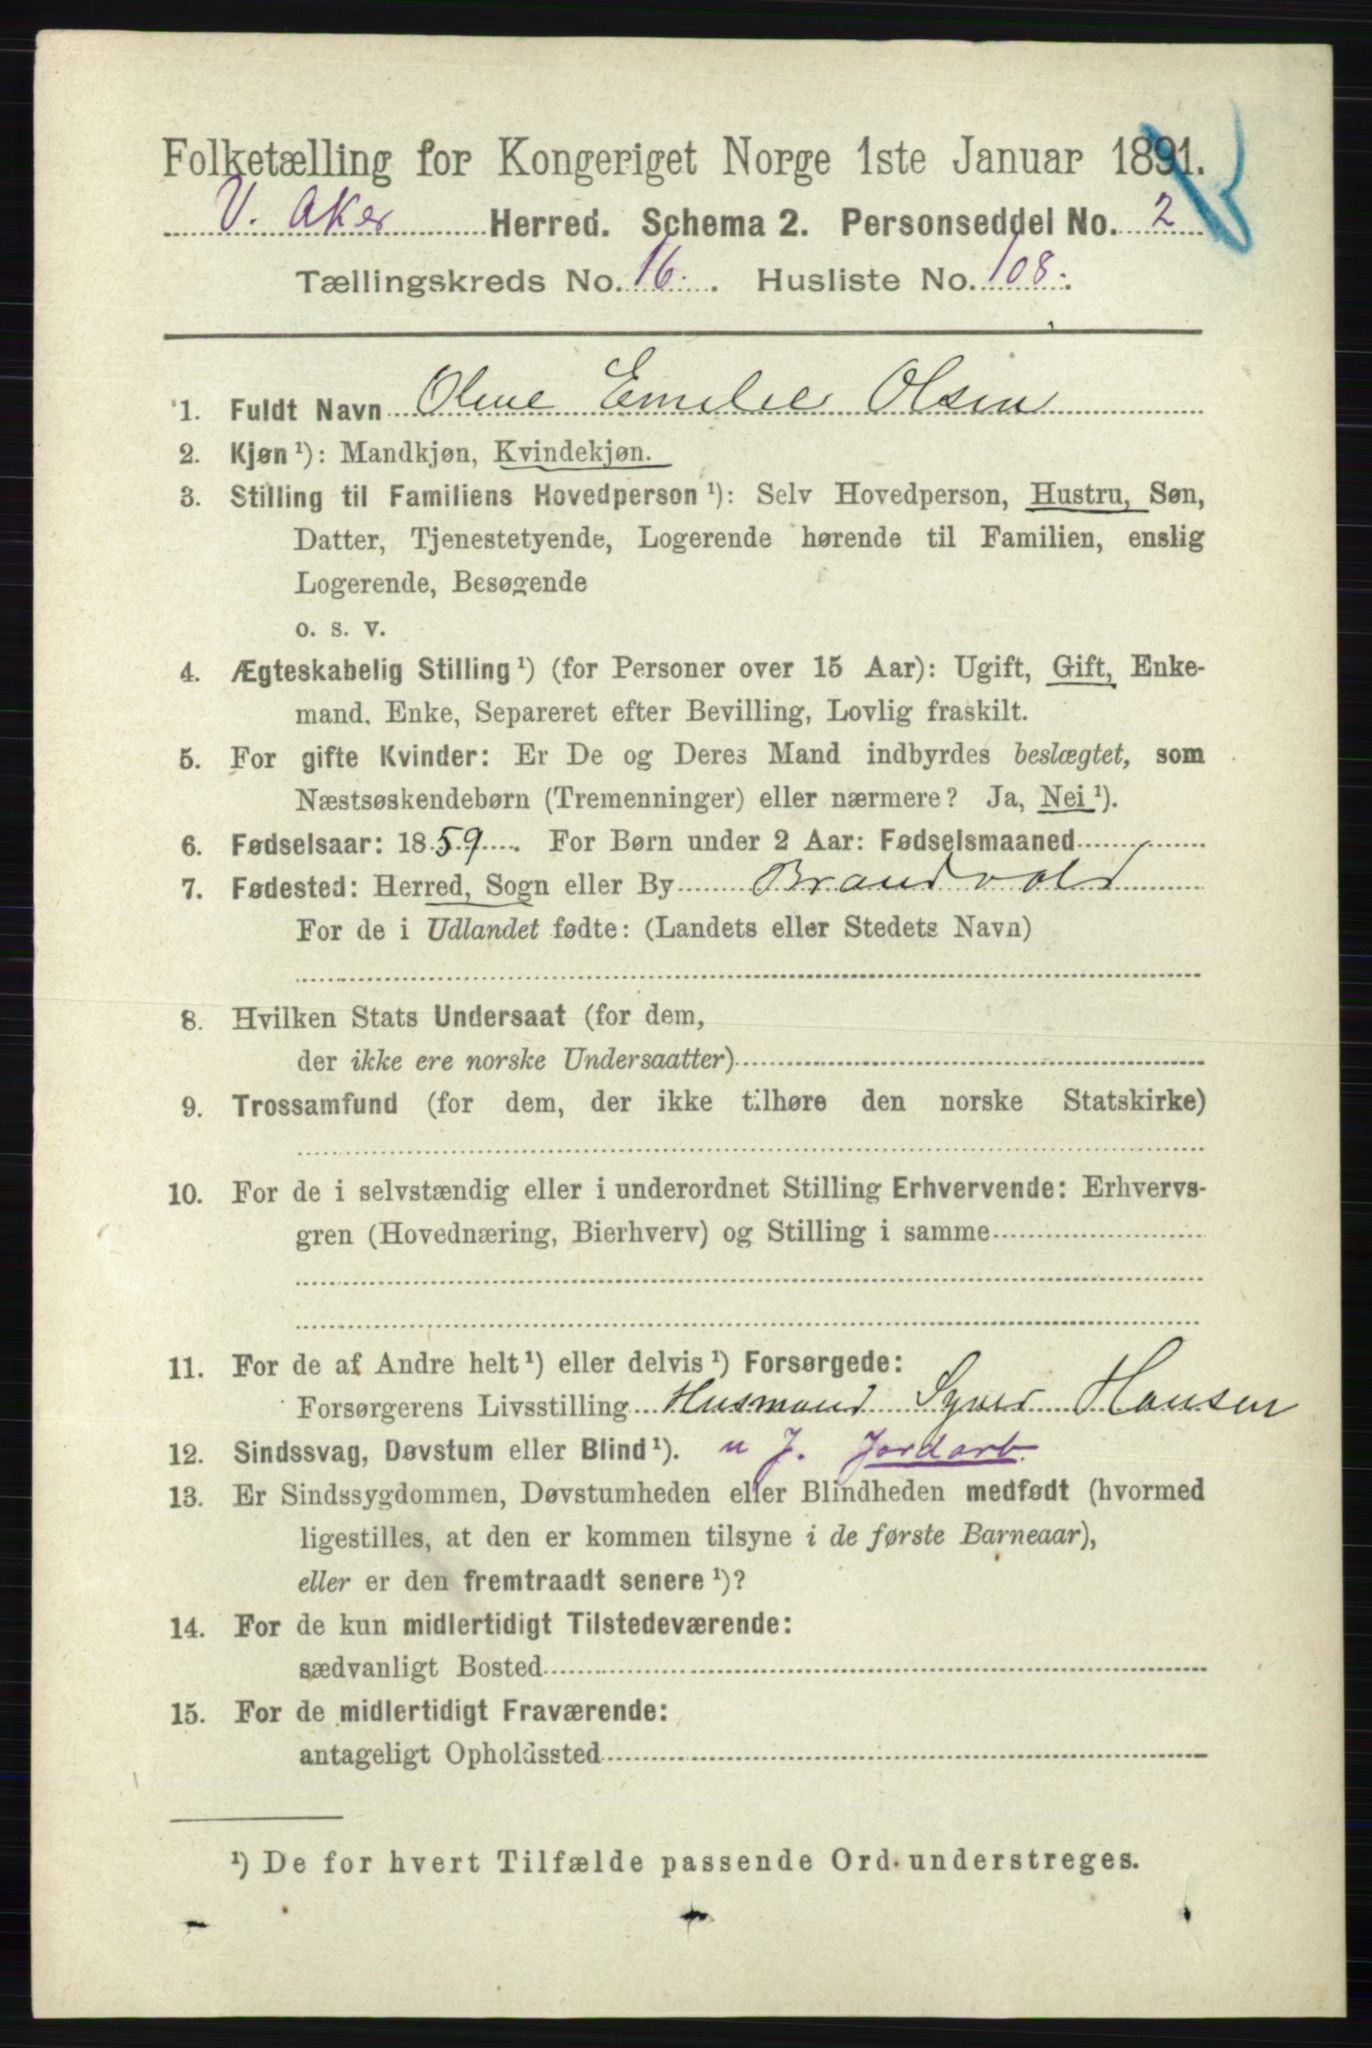 Folketælling for Kongeriget Norge 1ste Januar 1891.
V. Aker Herred. Schema 2. Personseddel No. 2
Tællingskreds No. 16. Husliste No. 108.
1. Fuldt Navn Oline Emilie Olsen
2. Kjøn ¹): Mandkjøn, Kvindekjøn.
3. Stilling til Familiens Hovedperson ¹): Selv Hovedperson, Hustru, Søn,
Datter, Tjenestetyende, Logerende hørende til Familien, enslig
Logerende, Besøgende
o. s. v.
4. Ægteskabelig Stilling ¹) (for Personer over 15 Aar): Ugift, Gift, Enke-
mand, Enke, Separeret efter Bevilling, Lovlig fraskilt.
5. For gifte Kvinder: Er De og Deres Mand indbyrdes beslægtet, som
Næstsøskendebørn (Tremenninger) eller nærmere? Ja, Nei ¹).
6. Fødselsaar: 1859. For Børn under 2 Aar: Fødselsmaaned
7. Fødested: Herred, Sogn eller By Brandvold
For de i Udlandet fødte: (Landets eller Stedets Navn)
8. Hvilken Stats Undersaat (for dem,
der ikke ere norske Undersaatter)
9. Trossamfund (for dem, der ikke tilhøre den norske Statskirke)
10. For de i selvstændig eller i underordnet Stilling Erhvervende: Erhvervs-
gren (Hovednæring, Bierhverv) og Stilling i samme
11. For de af Andre helt ¹) eller delvis ¹) Forsørgede:
Forsørgerens Livsstilling Husmand Syver Hansen
12. Sindssvag, Døvstum eller Blind ¹). u J. Jordarb.
13. Er Sindssygdommen, Døvstumheden eller Blindheden medfødt (hvormed
ligestilles, at den er kommen tilsyne i de første Barneaar),
eller er den fremtraadt senere ¹)?
14. For de kun midlertidigt Tilstedeværende:
sædvanligt Bosted
15. For de midlertidigt Fraværende:
antageligt Opholdssted
¹) De for hvert Tilfælde passende Ord understreges.